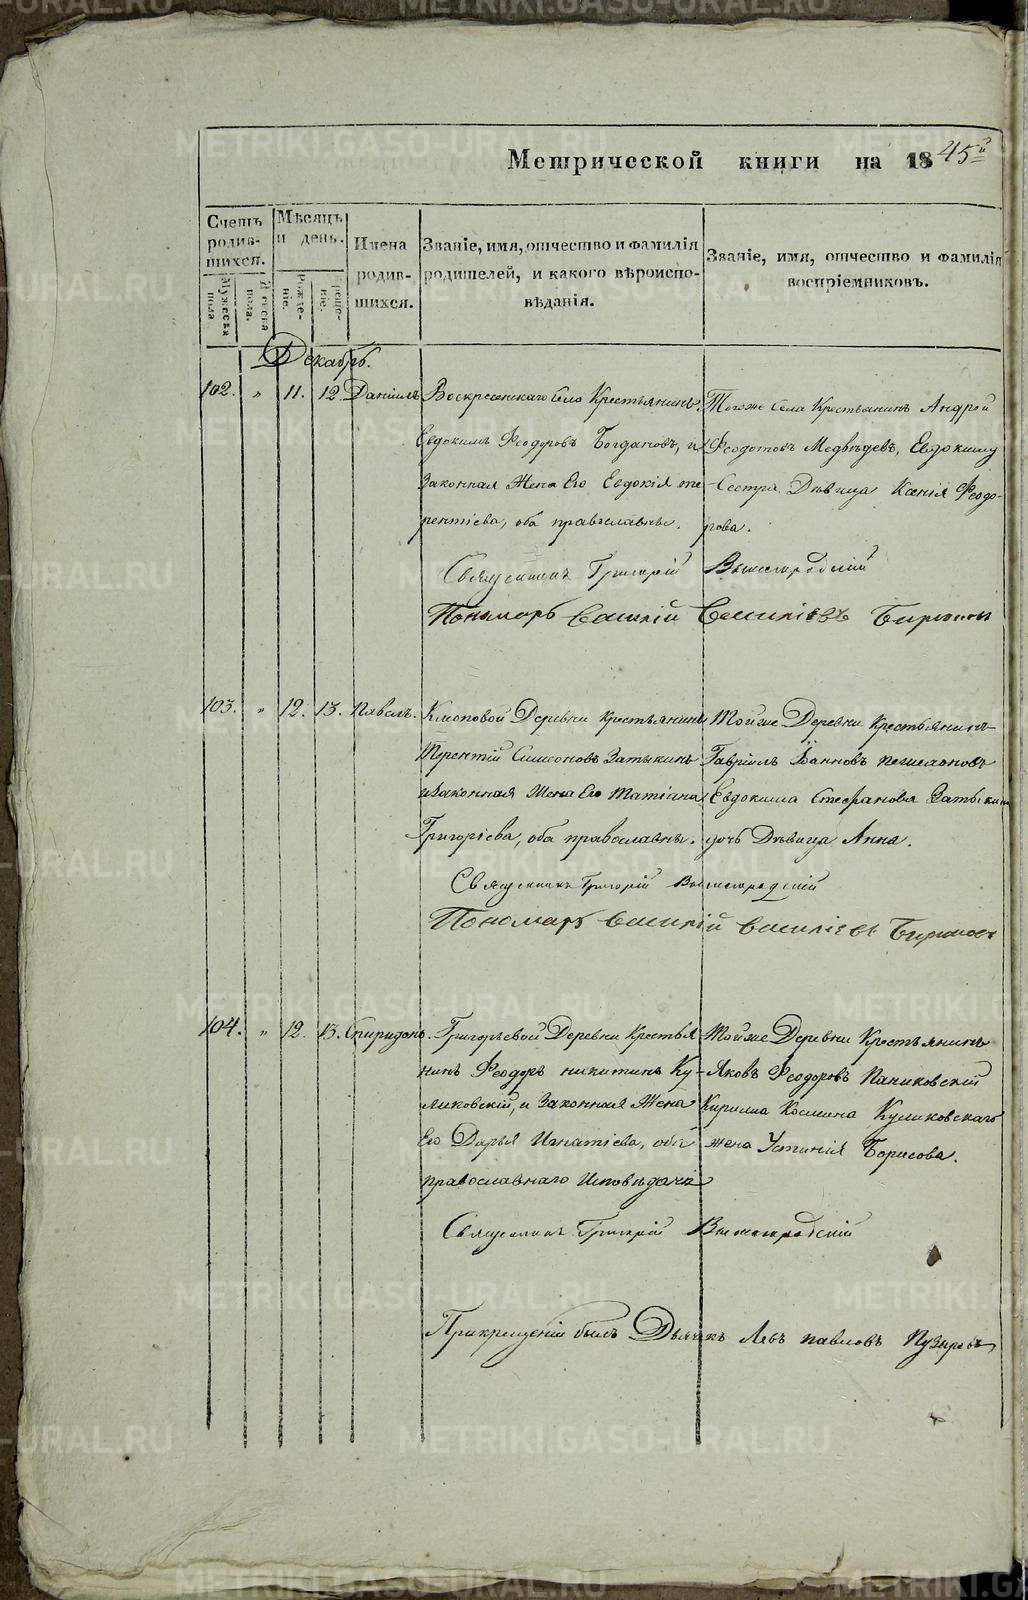 Метрической книги на 1845й
Счетъ родив-шихся.
Мѣсяцъ и день.
Имена родив-шихся.
Званіе, имя, отчество и фамилія родителей, и какого вѣроиспо-вѣданія.
Званіе, имя, отчество и фамилія воспріемниковъ.
Мужеска пола.
Женска пола.
Рожде-ніе.
Креще-ніе.
Декабрь.
102. " 11. 12 Даніилъ
Воскресенскаго Села Крестьянинъ
Евдокимъ Феодоровъ Богдановъ, и
Законная Жена Его Евдокія те
рентіева, оба православные.
Тогоже Села Крестьянинъ Андрей
Феодотовъ Медвѣдевъ, Евдокиму
Сестра Дѣвица Ксенія Феодо-
рова.
Священникъ Григорій Вышегородскій
Пономарь Василій Василіевъ Бирюков
103. " 12. 13. Павелъ.
Клюповой Деревни Крестьянинъ
Терентій Симеоновъ Затыкинъ
и Законная Жена Его Татіана
Григоріева, оба православны.
Тойже Деревни Крестьянинъ
Гавріилъ Іоанновъ
Евдокима Стефанова Затыкина
дочь Дѣвица Анна.
Священникъ Григорій Вышегородскій
Пономарь Василій Василіевъ Бирюков
104. " 12. 13. Спиридонъ.
Григорьевой Деревни Крестья
нинъ Феодоръ никитинъ Ку-
ликовскій, и Законная Жена
Его Дарья Игнатіева, оба
православнаго Исповѣданія
Тойже Деревни Крестьянинъ
Яковъ Феодоровъ Паниковскій
Кирилла Космина Куликовскаго
жена Устинія Борисова.
Священникъ Григорій Вышегородскій
Прикрещеніи былъ Дьячекъ Левъ павловъ Пузыревъ
METRIKI.GASO-URAL.RU